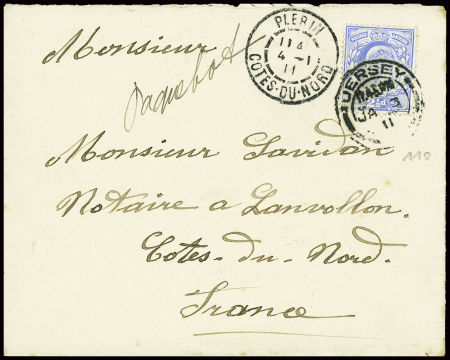 Monsieur
Paquebot
Monsieur Lavidan
Notaire a Lanvollon.
Cotes-du-Nord.
France
PLERIN
4 -1
11
COTES-DU-NORD
JERSEY
JA 3
11
110